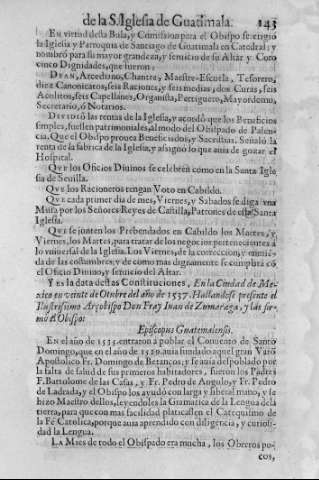 de la S. Iglesia de Guatimala. 143
En virtud desta Bula, y Comission para el Obispo se erigiò
la Iglesia y Parroquia de Santiago de Guatimala en Catedral; y
nombrò para su mayor grandeza, y servicio de su Altar y Coro
cinco Dignidades, que fueron:
DEAN, Arcediano, Chantre, Maestre-Escuela, Tesorero,
diez Canonicatos, seis Raciones, y seis medias; dos Curas, seis
Acolitos, seis Capellanes, Organista, Pertiguero, Mayordomo,
Secretario, ò Notarios.
DIVIDIÒ las rentas de la Iglesia, y acordò que los Beneficios
simples, fuessen patrimoniales, al modo del Obispado de Palen-
cia. Que el Obispo provea Beneficiados, y Sacristias. Señalò la
renta de la fabrica de la Iglesia, y assignò lo que avia de gozar el
Hospital.
QUE los Oficios Divinos se celebren como en la Santa Igle-
sia de Sevilla.
QUE los Racioneros tengan Voto en Cabildo.
QUE cada primer dia de mes, Viernes, y Sabados se diga una
Missa por los Señores Reyes de Castilla, Patrones de esta Santa
Iglesia.
QUE se junten los Prebendados en Cabildo los Martes, y
Viernes, los Martes, para tratar de los negocios pertenecientes à
lo universal de la Iglesia. Los Viernes, de la correccion, y enmien-
da de las costumbres, y de como mas dignamente se cumplirà co
el Oficio Divino, y servicio del Altar.
Y ES la data destas Constituciones, En la Ciudad de Me-
xico en veinte de Otubre del año de 1537. Hallandose presente el
Ilustrissimo Arçobispo Don Fray Iuan de Zumarraga, y las fir-
mò el Obispo:
Episcopus Guatemalensis.
En el año de 1535. entraron à poblar el Convento de Santo
Domingo, que en el año de 1529. avia fundado aquel gran Varō
Apostolico Fr. Domingo de Betanços; y se avia despoblado por
la falta de salud de sus primeros habitadores, fueron los Padres
F. Bartolome de las Casas, y Fr. Pedro de Angulo, y Fr. Pedro
de Ladrada, y el Obispo los ayudò con larga y liberal mano, y se
hizo Maestro dellos, leyendoles la Gramatica de la Lengua de la
tierra, para que con mas facilidad platicassen el Catequismo de
la Fè Catolica, porque avia aprendido con diligencia, y curiosi-
dad la Lengua.
LA Mies de todo el Obispado era mucha, los Obreros po-
cos,